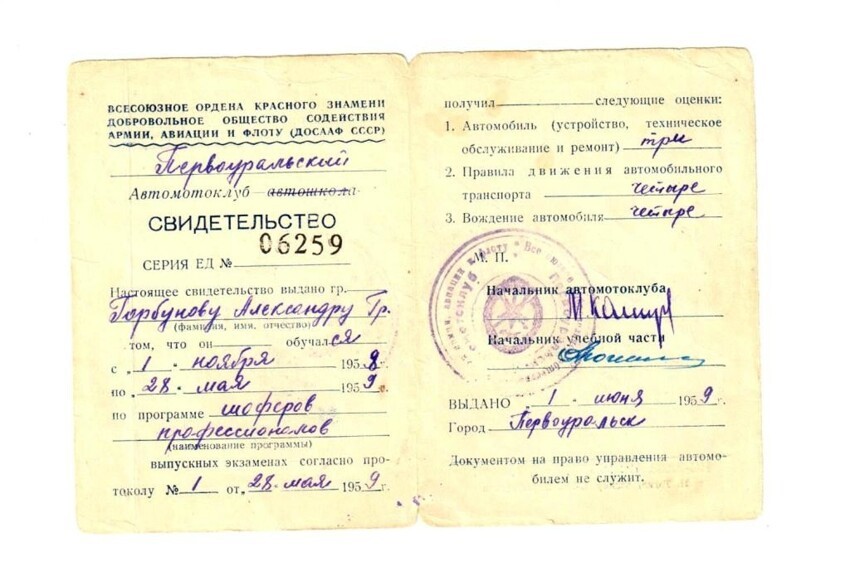 ВСЕСОЮЗНОЕ ОРДЕНА КРАСНОГО ЗНАМЕНИ
ДОБРОВОЛЬНОЕ ОБЩЕСТВО СОДЕЙСТВИЯ
АРМИИ, АВИАЦИИ И ФЛОТУ (ДОСААФ СССР)
Первоуральский
Автомотоклуб автошкола
СВИДЕТЕЛЬСТВО
06259
СЕРИЯ ЕД №
Настоящее свидетельство выдано гр.
Горбунову Александру Гр.
(фамилия, имя, отчество)
том, что он обучался
с 1 ноября 1958
по 28 мая 1959 г.
по программе шоферов
профессионалов
(наименование программы)
выпускных экзаменах согласно про-
токолу № 1 от 28 мая 1959 г.
получил следующие оценки:
1. Автомобиль (устройство, техническое
обслуживание и ремонт) три
2. Правила движения автомобильного
транспорта четыре
3. Вождение автомобиля четыре
М. П.
Начальник автомотоклуба
Начальник учебной части
ВЫДАНО 1 июня 1959 г.
Город Первоуральск
Документом на право управления автомо-
билем не служит.